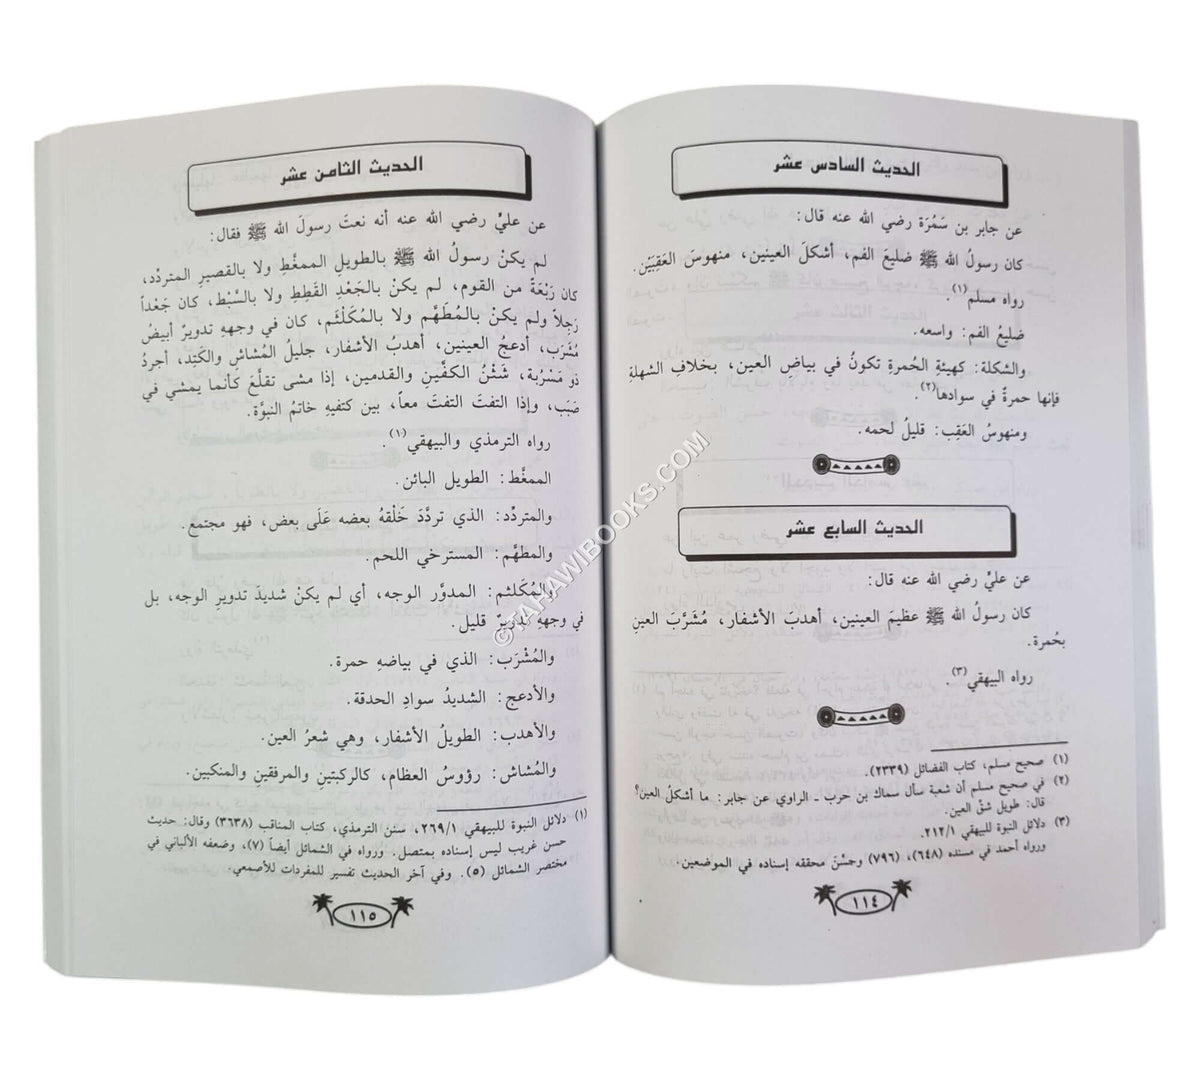 الحديث السادس عشر
عن جابر بن سَمُرَة رضي الله عنه قال:
كان رسولُ الله ﷺ ضليعَ الفم، أشكلَ العينين، منهوسَ العَقِبَيْن.
رواه مسلم(١).
ضليعُ الفم: واسعه.
والشكلة: كهيئةِ الحُمرةِ تكونُ في بياضِ العين، بخلافِ الشهلةِ
فإنها حمرةٌ في سوادها(٢).
ومنهوسُ العَقِب: قليلُ لحمه.
الحديث السابع عشر
عن عليٍّ رضي الله عنه قال:
كان رسول الله ﷺ عظيمَ العينين، أهدبَ الأشفار، مُشَرَّبَ العينِ
بحُمرة.
رواه البيهقي(٣).
(١) صحيح مسلم، كتاب الفضائل (٢٣٣٩).
(٢) في صحيح مسلم أن شعبة سأل سماك بن حرب ـ الراوي عن جابر: ما أشكلُ العين؟
قال: طويل شقِّ العين.
(٣) دلائل النبوة للبيهقي ٢١٢/١.
ورواه أحمد في مسنده (٦٤٨)، (٧٩٦) وحسَّنَ محققه إسناده في الموضعين.
١١٤
الحديث الثامن عشر
عن عليٍّ رضي الله عنه أنه نعتَ رسولَ الله ﷺ فقال:
لم يكنْ رسولُ الله ﷺ بالطويلِ الممغَّطِ ولا بالقصيرِ المتردِّد،
كان رَبْعَةً من القوم، لم يكنْ بالجَعْدِ القَطِطِ ولا بالسَّبْط، كان جَعْداً
رَجِلاً ولم يكنْ بالمُطَهَّم ولا بالمُكَلْثَم، كان في وجههِ تدويرٌ أبيضُ
مُشْرَب، أدعجُ العينين، أهدبُ الأشفار، جليلُ المُشاشِ والكَتِد، أجردُ
ذو مَسْرُبة، شَثْنُ الكفَّينِ والقدمين، إذا مشى تقلَّعَ كأنما يمشي في
صَبَب، وإذا التفتَ التفتَ معاً، بين كتفيهِ خاتمُ النبوَّة.
رواه الترمذي والبيهقي(١).
الممغَّط: الطويل البائن.
والمتردِّد: الذي تردَّدَ خَلْقهُ بعضه عَلَى بعض، فهو مجتمع.
والمطهَّم: المسترخي اللحم.
والمُكَلثم: المدوَّر الوجه، أي لم يكنْ شديدَ تدويرِ الوجه، بل
في وجههِ تدويرٌ قليل.
والمُشْرَب: الذي في بياضهِ حمرة.
والأدعج: الشديدُ سوادِ الحدقة.
والأهدب: الطويلُ الأشفار، وهي شعرُ العين.
والمُشاش: رؤوسُ العظام، كالركبتينِ والمرفقينِ والمنكبين.
(١) دلائل النبوة للبيهقي ٢٦٩/١، سنن الترمذي، كتاب المناقب (٣٦٣٨) وقال: حديث
حسن غريب ليس إسناده بمتصل. ورواه في الشمائل أيضاً (٧)، وضعفه الألباني في
مختصر الشمائل (٥). وفي آخر الحديث تفسير للمفردات للأصمعي.
١١٥
© TAHAWIBOOKS.COM